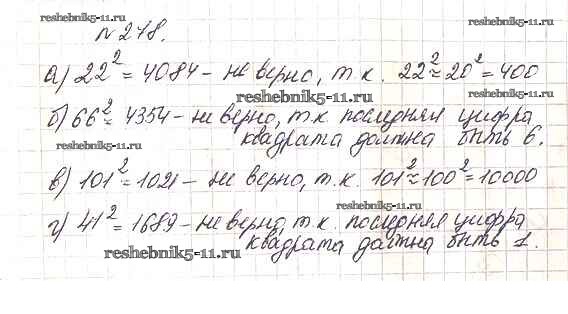 reshebnik5-11.ru
№ 248.
reshebnik5-11.ru
а) 22² = 4084 - не верно, т.к. 22² ≈ 20² = 400
reshebnik5-11.ru
б) 66² = 4354 - не верно, т.к последняя цифра
квадрата должна быть 6.
reshebnik5-11.ru
в) 101² = 1021 - не верно, т.к. 101² ≈ 100² = 10000
reshebnik5-11.ru
г) 41² = 1689 - не верно, т.к. последняя цифра
квадрата должна быть 1.
reshebnik5-11.ru